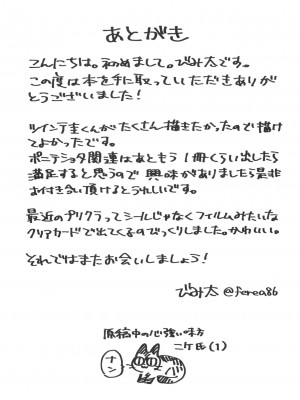 あとがき
こんにちは。初めまして。びみ太です。
この度は本を手に取っていただきありが
とうございました！
ツインテ圭くんがたくさん描きたかったので描け
てよかったです。
ポニテショタ関連はあともう1冊くらい出したら
満足すると思うので興味がありましたら是非
お付き合い頂けるとうれしいです。
最近のプリクラってシールじゃなくフィルムみたいな
クリアカードで出てくるのでびっくりしました。かわいい。
それではまたお会いしましょう！
びみ太 @ferea86
原稿中の心強い味方
ニケ氏(1)
ナン